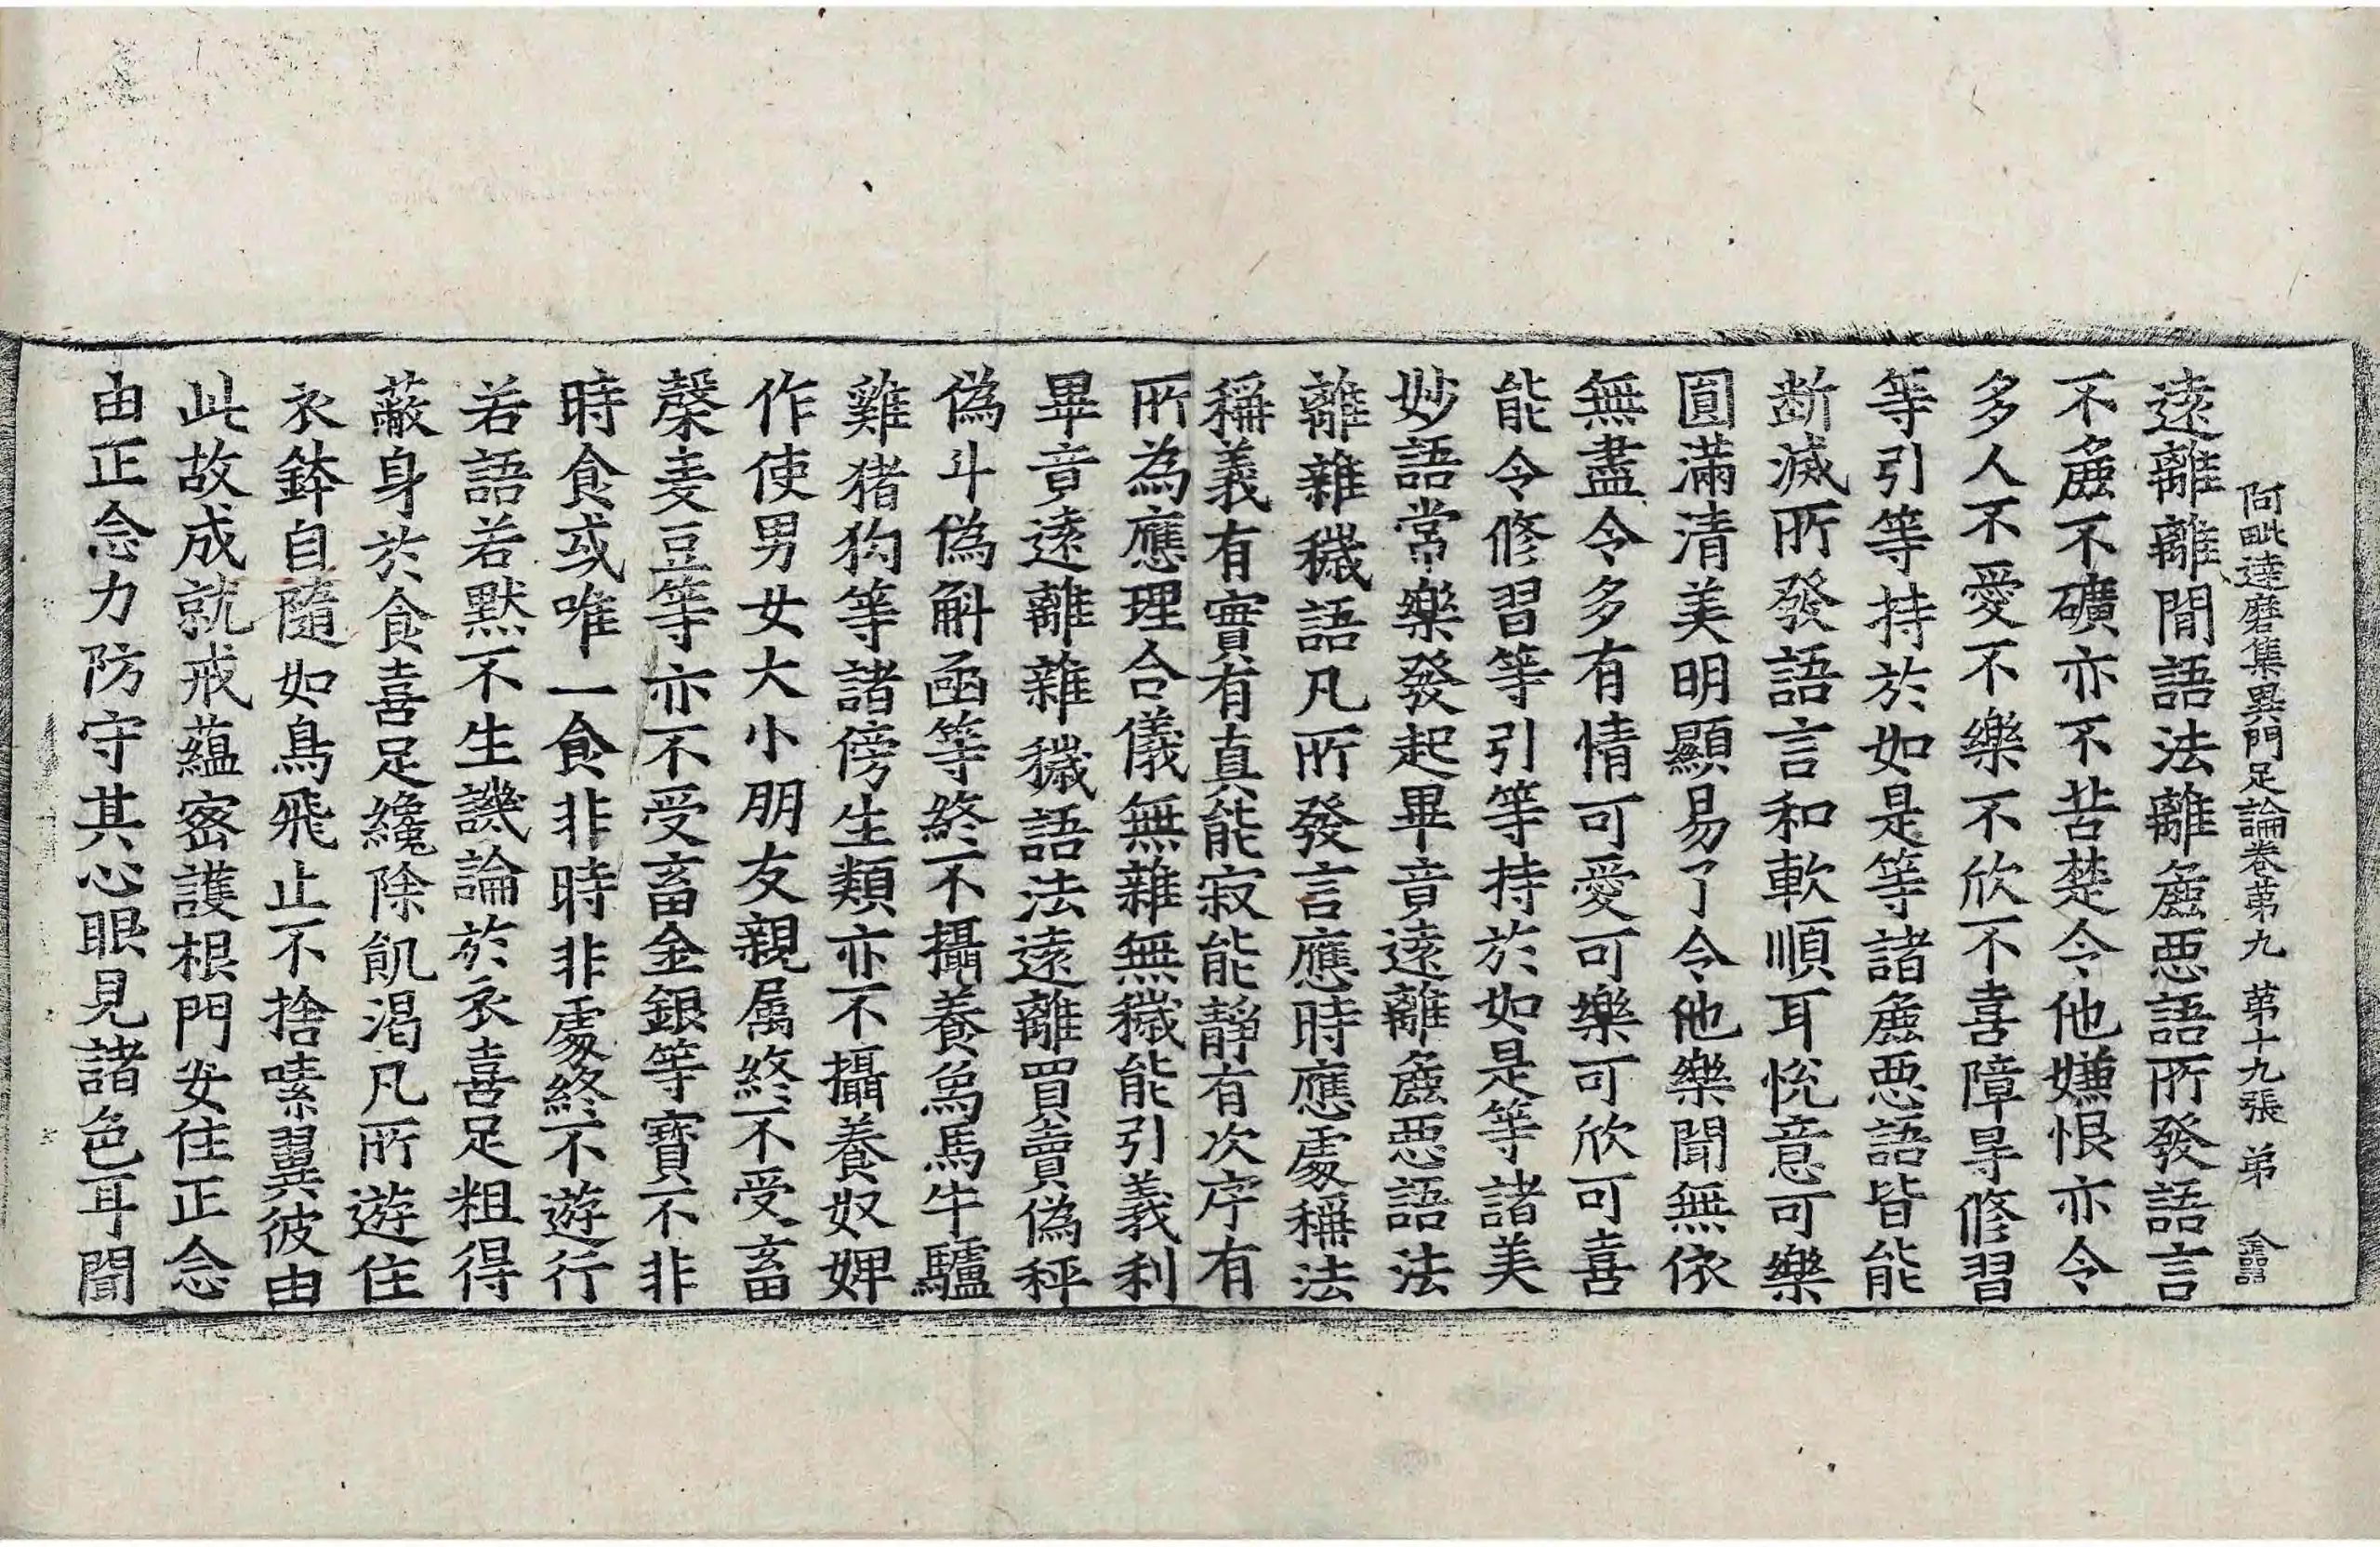 阿毗達磨集異門足論卷苐九　苐十九張　弟
遠離離間語法離麁惡語所發語言
不麁不礦亦不苦楚令他嫌恨亦令
多人不愛不樂不欣不喜障㝵修習
等引等持於如是等諸麁惡語皆能
斷滅所發語言和軟順耳悅意可樂
圎滿清美明顯易了令他樂聞無依
無盡令多有情可愛可樂可欣可喜
能令修習等引等持於如是等諸美
妙語常樂發起畢竟遠離麁惡語法
離雜穢語凡所發言應時應處稱法
稱義有實有真能寂能靜有次序有
所為應理合儀無雜無穢能引義利
畢竟遠離雜穢語法遠離買賣偽秤
偽斗偽斛函等終不攝養鳥馬牛驢
雞猪狗等諸傍生類亦不攝養奴婢
作使男女大小朋友親属終不受畜
麦豆等亦不受畜金銀等寶不非
時食或唯一食非時非處終不遊行
若語若默不生譏論於衣喜足粗得
蔽身於食喜足纔除飢渴凡所遊住
衣鉢自隨如鳥飛止不捨嗉翼彼由
此故成就戒蘊密護根門安住正念
由正念力防守其心眼見諸色耳聞